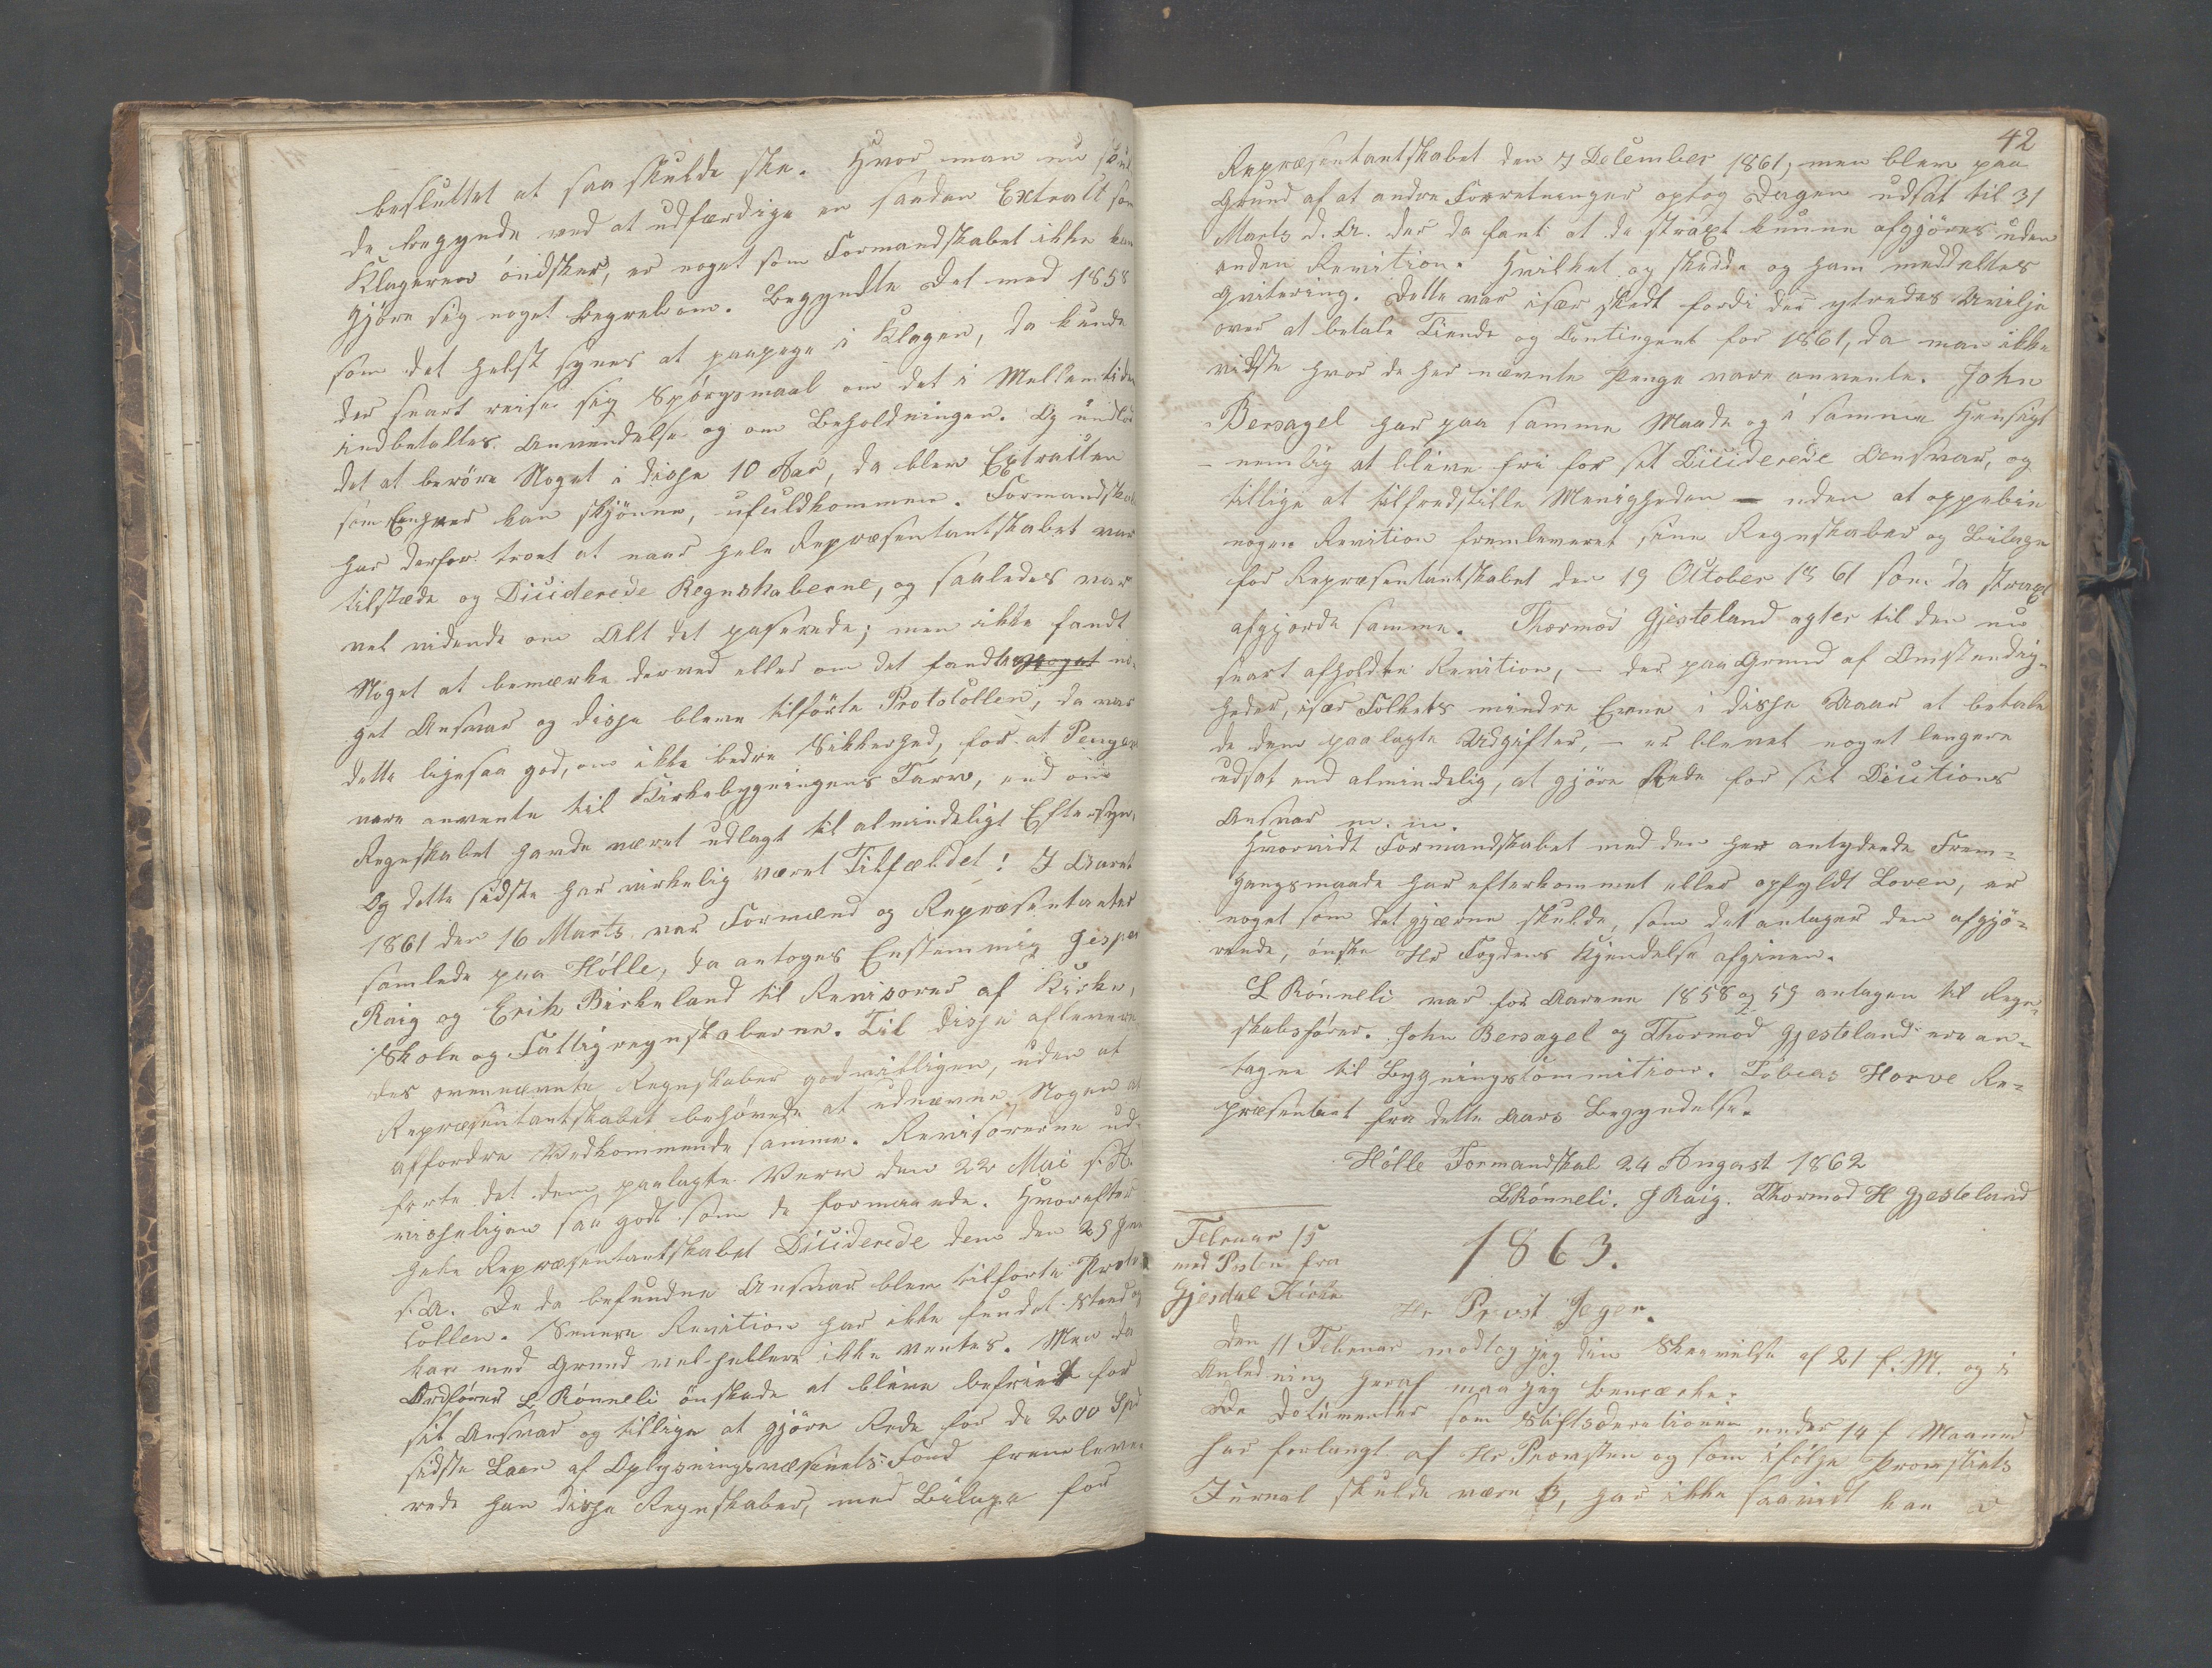 besluttet at saa skulde ske. Hvor man nu skul
de begynde ved at udfærdige en saadan Extrakt som
Klageren óndsker, er noget som Formandskabet ikke kan
gjöre sig noget Begreb om. Begyndte det med 1858
som det helst synes at paapege i Klagen, da kunde
der snart reise sig Spörgsmaal om det i Mellemtiden
indbetaltes Anvendelse og om Beholdningen. Og undlod
det at beröre Noget i disse 10 Aar, da blev Extrakten
som Enhver kan skjönne, ufuldkommen. Formandskab
har derfor troet at naar hele Repræsentantskabet var
tilstæde og Diciderede Regnskaberne, og saaledes var
vel vidende om Alt det paserede; men ikke fandt
Noget at bemærke derved eller om det fandt noget no-
get Ansvar og disse bleve tilförte Protocollen, da var
dette ligesaa god, om ikke bedre Sikkerhed, for at Pengene
vare anvente til Kirkebygningens Tarv, end om
Regnskabet havde været udlagt til almindeligt Eftersyn,
Og dette sidste har virkelig været Tilfældet! I Aaret
1861 den 16 Marts var Formænd og Repræsentanter
samlede paa Hölle, da antoges Enstemmig Jesper
Raig og Erik Birkeland til Revisorer af Kirke,
Skole og Fattigregnskaberne. Til disse aflevere
des ovennævnte Regnskaber godvilligen, uden at
Repræsentantskabet behövede at udnævne Nogen at
affordre Vedkommende samme. Revisorerne ud-
förte det dem paalagte Verv den 22 Mai s. A.
visseligen saa godt som de formaaede. Hvorefter
hele Repræsentantskabet Diciderede dem den 25 Jun
s. A. De da befundne Ansvar blev tilförte Proto
collen. Senere Revition har ikke fundet Sted og
kan med Grund vel hellere ikke ventes. Men da
Ordförer L Rönneli önskede at blive befriet for
sit Ansvar og tillige at gjöre Rede for de 200 Spd
sidste Laan af Oplysningsvæsenets Fond fremleve-
rede han disse Regnskaber, med Bilage for
42
Repræsentantskabet den 7 December 1861; men blev paa
Grund af at andre Forretninger optog Dagen udsat til 31
Marts d. A. der da fant at de straxt kunne afgjöres uden
anden Revition. Hvilket og skedde og ham meddeltes
Qvitering. Dette var især skedt fordi der ytredes Uvilje
over at betale Tiende og Contingent for 1861, da man ikke
vidste hvor de her nævnte Penge vare anvente. John
Bersagel har paa samme Maade og i samme Hensigt
– nemlig at blive fri for sit Diciderede Ansvar, og
tillige at tilfredstille Menigheden – uden at oppebie
nogen Revition fremleveret sine Regnskaber og Bilage
for Repræsentantskabet den 19 October 1861 som da straxt
afgjorde samme. Thormod Gjesteland agter til den nu
snart afholdte Revition, – der paa Grund af Omstændig-
heder, især Folkets mindre Evne i disse Aaar at betale
de dem paalagte Udgifter, – er blevet noget lengere
udsat end almindelig, at gjöre Rede for sit Dicitions
Ansvar m. m.
Hvorvidt Formandskabet med den her antydede Frem-
gangsmaade har efterkommet eller opfyldt Loven, er
noget som det gjærne skulde, som det antager den afgjö-
rende, önske Hr Fogdens Kjendelse afgiven.
L Rönneli var for Aarene 1858 og 59 antagen til Regn-
skabsförer. John Bersagel og Thormod Gjesteland ere an-
tagne til Bygningskommition. Tobias Horve Re-
præsentant fra dette Aars Begyndelse.
Hölle Formandskab 24 August 1862
L Rönneli. J Raig. Thormod H Gjesteland
Februar 15
med Posten fra
Gjesdal Kirke
1863.
Hr Provst Jeger.
Den 11 Februar modtog jeg din Skrivelse af 21 f. M. og i
Anledning heraf maa jeg bemærke:
De Dokumenter som Stiftsdirektionen under 14 f Maaned
har forlangt af Hr Provsten og som ifölge Provstiets
Jurnal skulde være 3, har ikke saavidt kan v